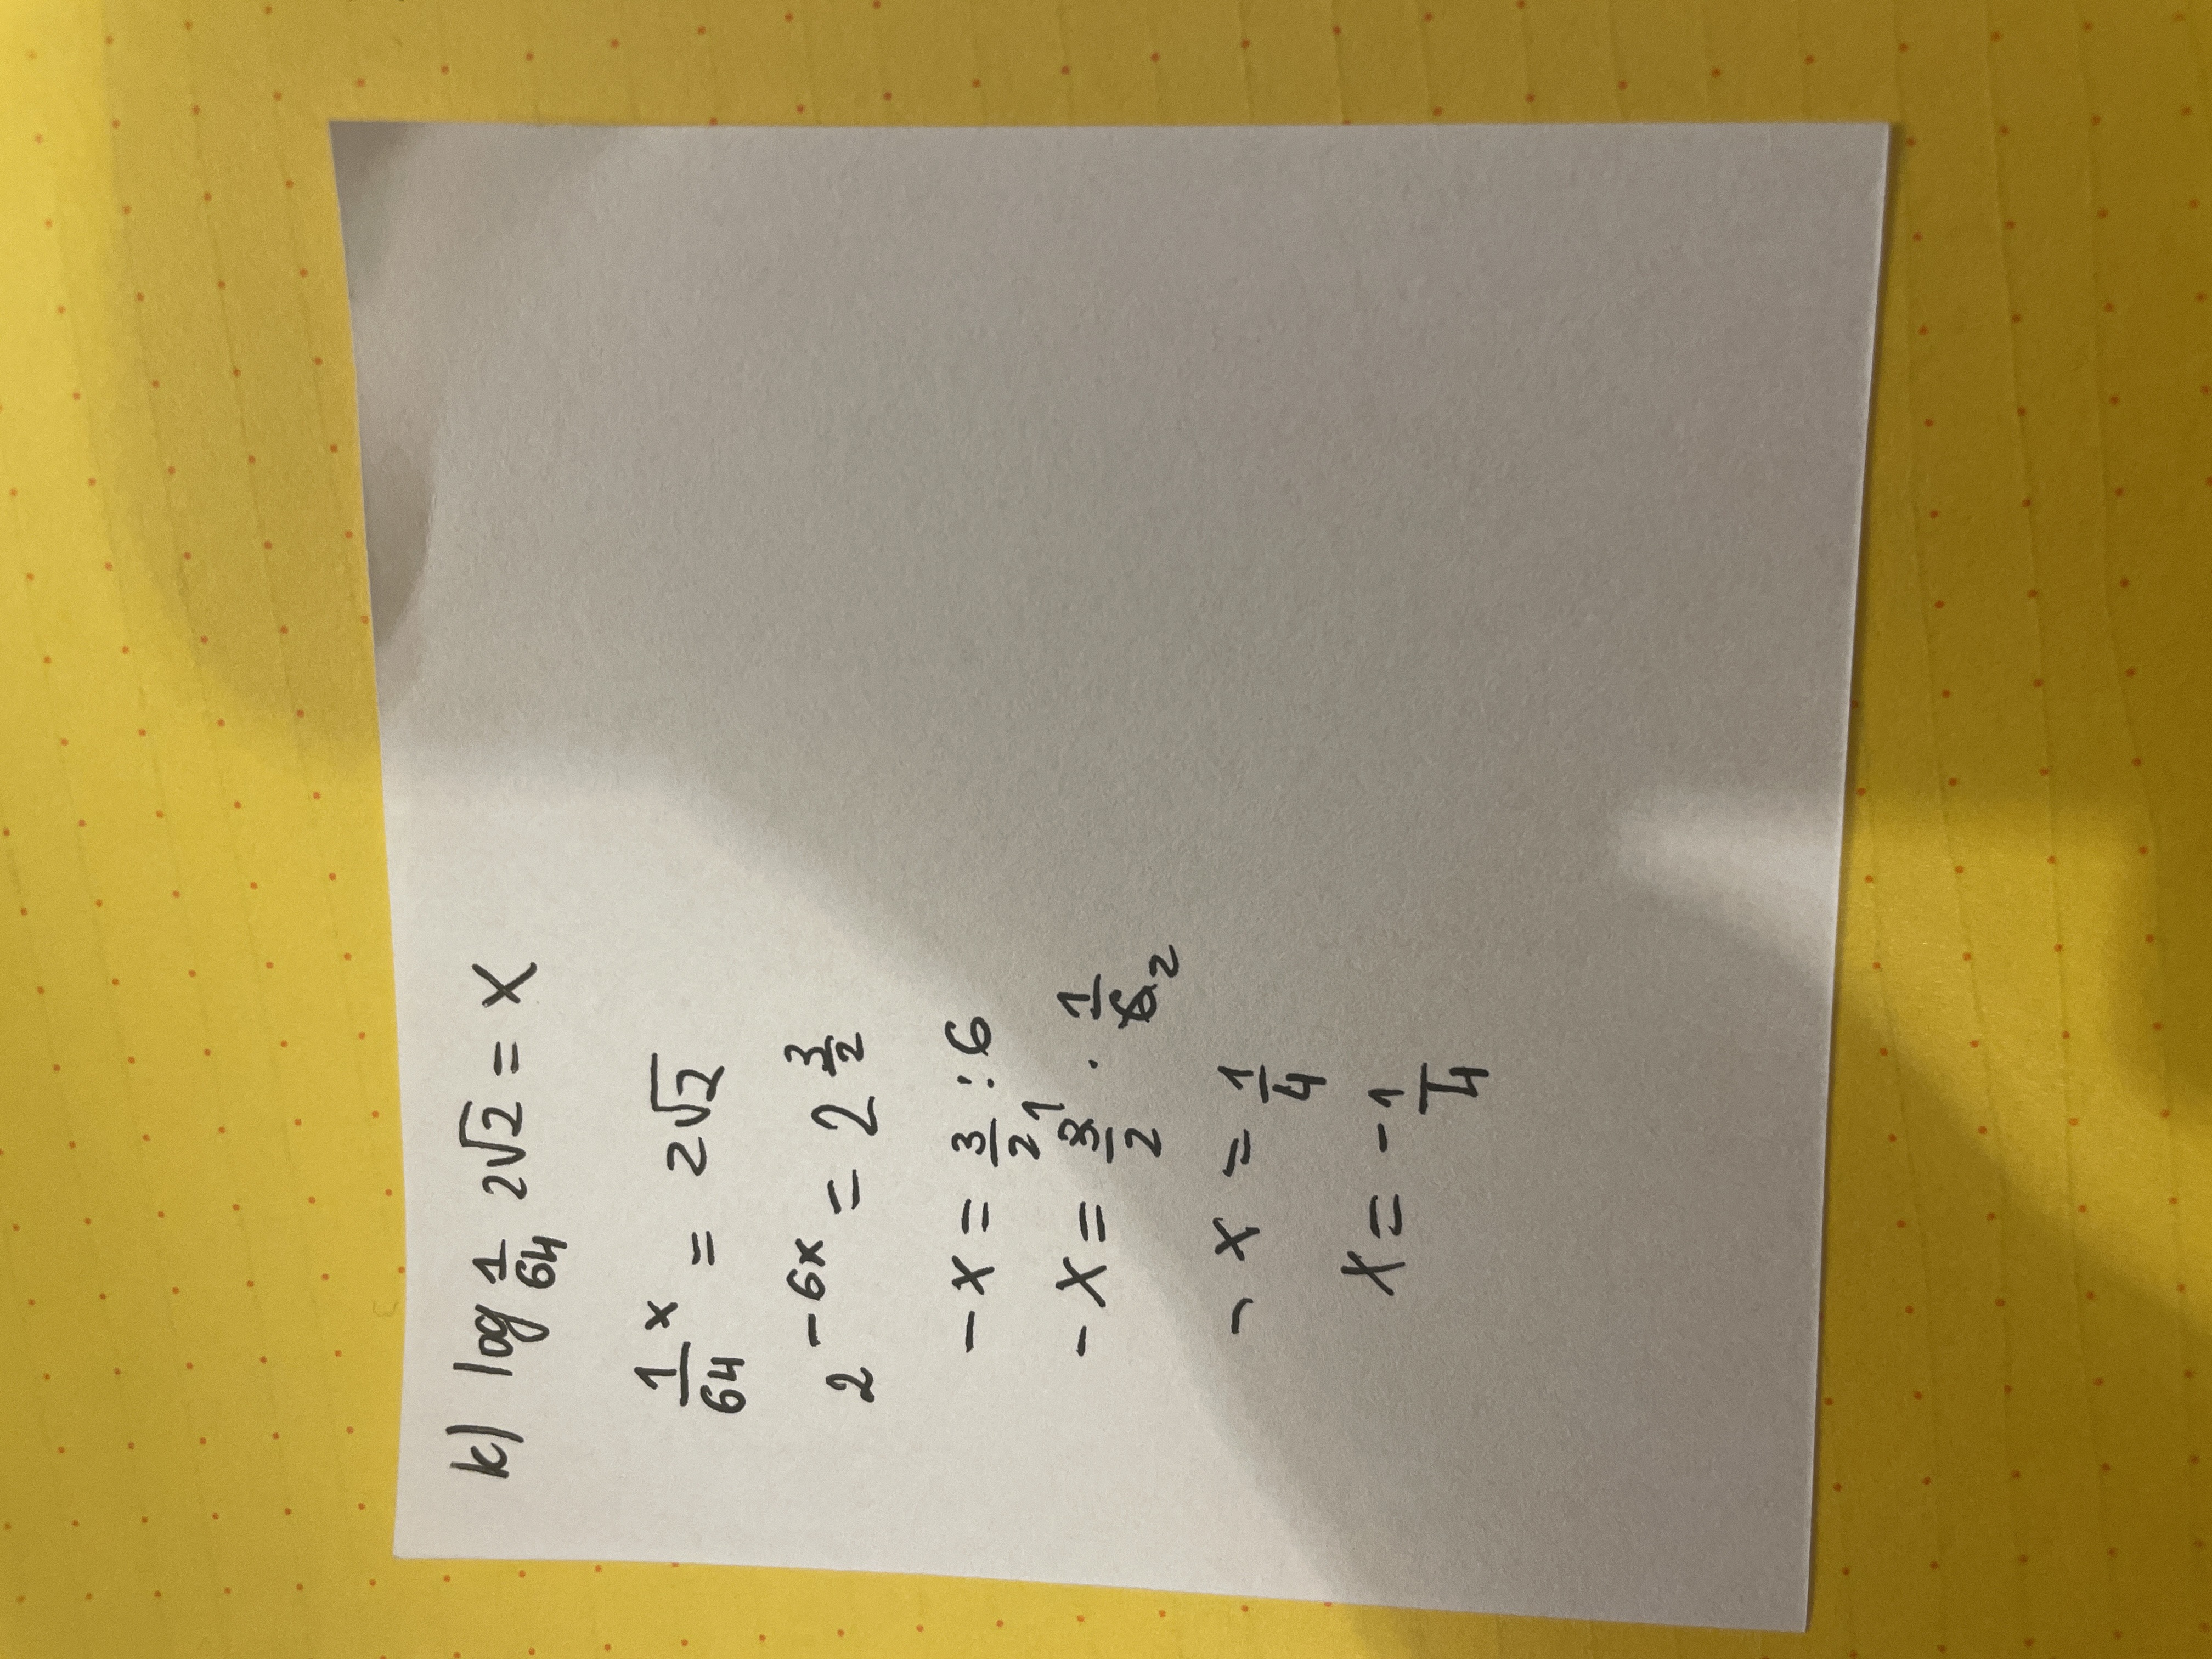 k) log 1/64 2√2 = x
1/64 x = 2√2
2 -6x = 2 3/2
-x = 3/2 : 6
-x = 3/2 1 · 1/6 2
-x = 1/4
x = -1/4